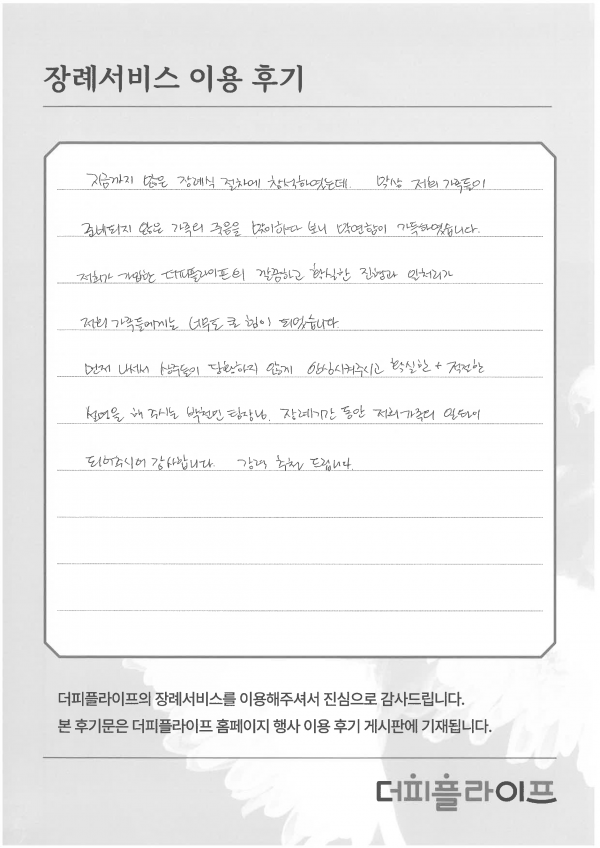 장례서비스 이용 후기
지금까지 많은 장례식 절차에 참석하였는데. 막상 저희 가족들이
준비되지 않은 가족의 죽음을 맞이하다 보니 막연함이 가득하였습니다.
저희가 가입한 더피플라이프의 깔끔하고 확실한 진행과 일처리가
저희 가족들에게는 너무도 큰 힘이 되었습니다.
먼저 나서서 상주들이 당황하지 않게 안심시켜주시고 확실한 + 적절한
설명을 해 주시는 팀장님. 장례기간 동안 저희 가족의
되어주시어 감사합니다. 강력 추천 드립니다.
더피플라이프의 장례서비스를 이용해주셔서 진심으로 감사드립니다.
본 후기문은 더피플라이프 홈페이지 행사 이용 후기 게시판에 기재됩니다.
더피플라이프